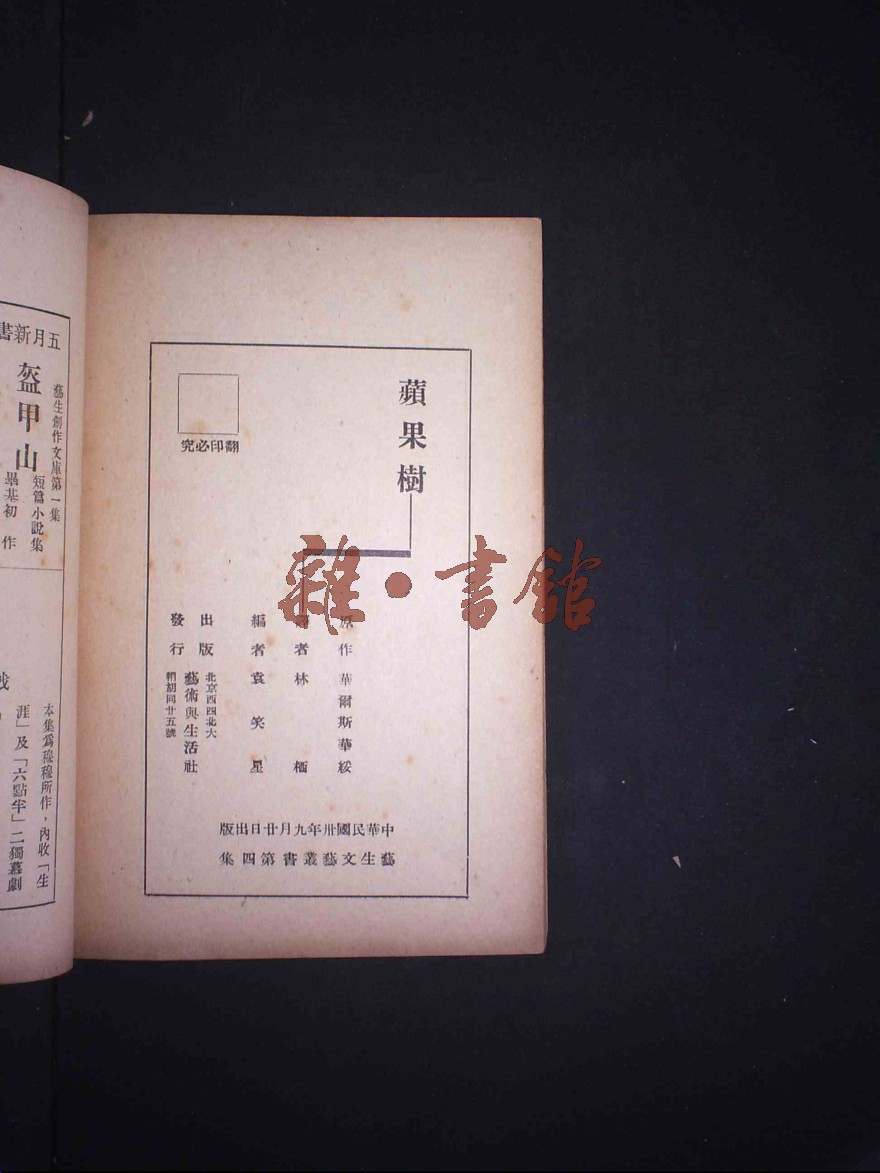 蘋果樹
翻印必究
原作 華爾斯華綏
譯者 林栖
編者 袁笑星
出版
發行
北京西四北大
藝術與生活社
帽胡同廿五號
中華民國卅年九月廿日出版
藝生文藝叢書第四集
雜·書館
五月新書
藝生創作文庫第一集
盔甲山
短篇小說集
畢基初作
本集爲穆穆所作，內收「生
涯」及「六點半」二獨幕劇